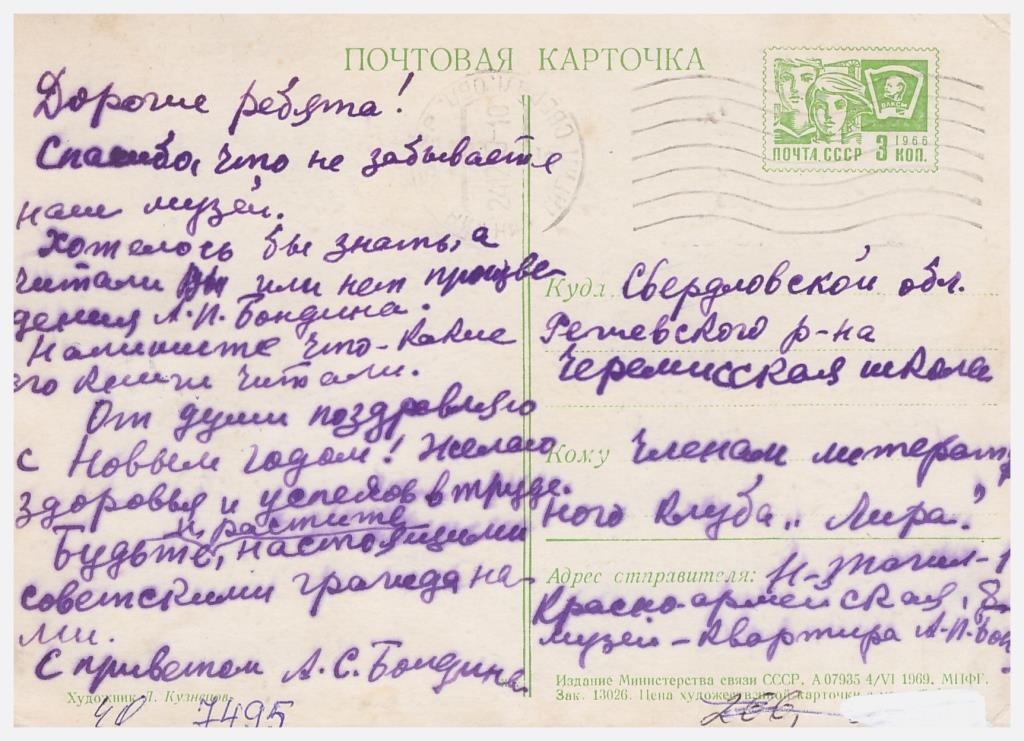 ПОЧТОВАЯ КАРТОЧКА
ПОЧТА СССР 3 КОП.
1966
ВЛКСМ
Дорогие ребята!
Спасибо, что не забываете
наш музей.
Хотелось бы знать, а
читали Вы или нет произве-
дения А.П. Бондина.
Напишите что-какие
его книги читали.
От души поздравляю
с Новым годом! Желаю
здоровья и успехов в труде.
и растите
Будьте, настоящими
советскими гражданами
ми.
С приветом А.С. Бондина
Художник Л. Кузнецов
ЧП 7495
Куда Свердловской обл.
Режевского р-на
Черемисская школа
Кому Членам литерат
ного клуба „Лира"
Адрес отправителя: Н-Тагил-1
Красно-армейская, 8
музей-квартира А.П. Бон
Издание Министерства связи СССР. А 07935 4/VI 1969. МПФГ.
Зак. 13026. Цена художественной карточки с
266,